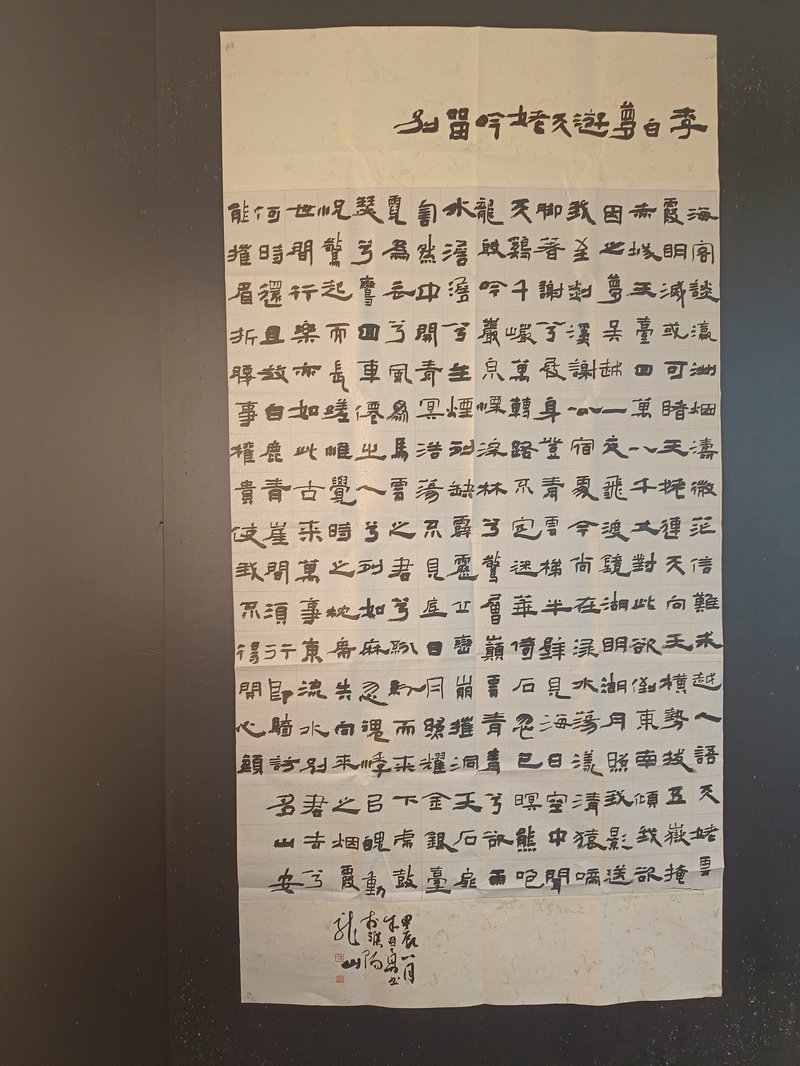 李白夢遊天姥吟留別
海客談瀛洲烟濤微茫信難求越人語天姥雲
霞明滅或可睹天姥連天向天橫勢拔五嶽掩
赤城天臺四萬八千丈對此欲倒東南傾我欲
因之夢吳越一夜飛渡鏡湖明湖月照我影送
我至剡溪謝公宿處今尚在淥水蕩漾清猿啼
脚著謝公屐身登青雲梯半壁見海日空中聞
天鷄千巖萬轉路不定迷華倚石忽已暝熊咆
龍殷吟巖泉慄深林兮驚層巔雲青青兮欲雨
水澹澹兮生煙列缺霹靂丘巒崩摧洞天石扉
訇然中開青冥浩蕩不見底日月照耀金銀臺
霓為衣兮風為馬雲之君兮紛紛而来下虎鼓
瑟兮鸞回車僊之人兮列如麻忽魂悸㠯魄動
怳驚起而長嗟惟覺時之枕席失向来之烟霞
世間行樂亦如此古来萬事東流水別君去兮
何時還且放白鹿青崖間須行即騎訪名山安
能摧眉折腰事權貴使我不得開心顏
甲辰八月
龍山